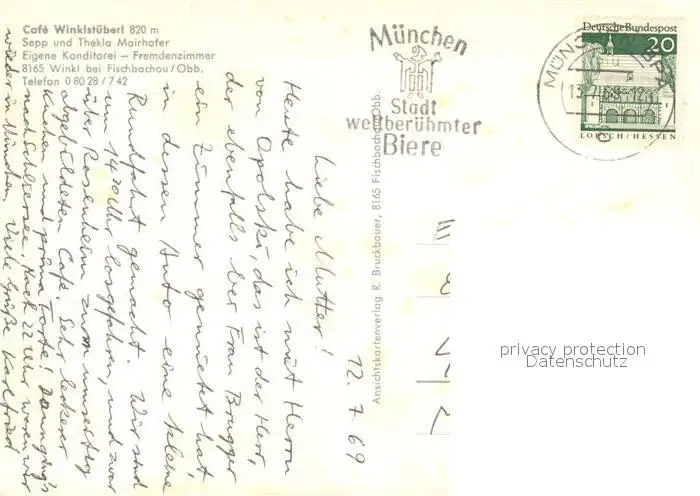 Café Winklstüberl 820 m
Sepp und Thekla Mairhofer
Eigene Konditorei – Fremdenzimmer
8165 Winkl bei Fischbachau/Obb.
Telefon 0 80 28 / 7 42
München
Stadt
weltberühmter
Biere
Deutsche Bundespost
20
LORSCH/HESSEN
MÜN
13.7.69-12
Ansichtskartenverlag R. Bruckbauer, 8165 Fischbachau/Obb.
12.7.69
Liebe Mutter!
Heute habe ich mit Herrn
von Opolski, das ist der Herr,
der ebenfalls bei Frau Brugger
ein Zimmer gemietet hat,
in dessen Auto eine kleine
Rundfahrt gemacht. Wir sind
um 14.30 Uhr losgefahren, und zwar
über Rosenheim zum umseitig
abgebildeten Café. Sehr leckerer
Kuchen und prima Torte! Dann ging's
nach Schliersee. Nach 22 Uhr waren wir
wieder in München. Viele Grüße Karlfried
privacy protection
Datenschutz